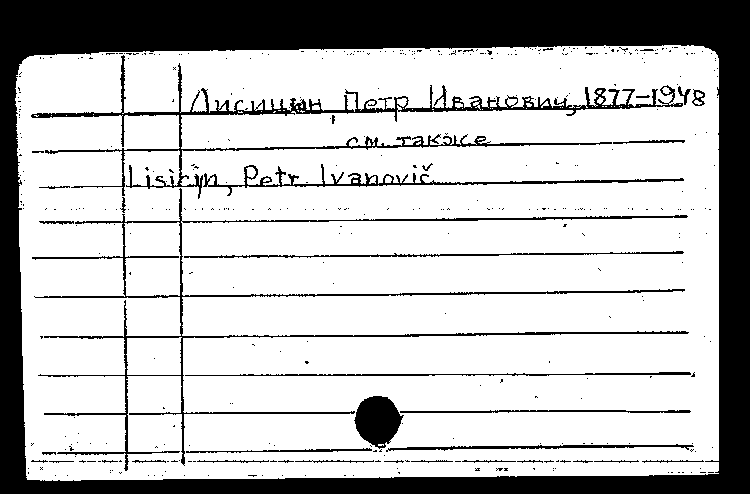 Лисицын, Петр Иванович, 1877-1948
см. также
Lisicyn, Petr Ivanovič